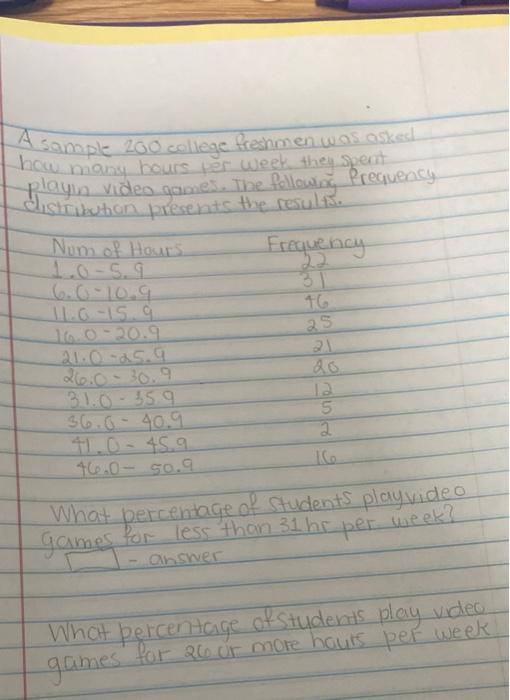 A sample 200 college freshmen was asked
how many hours per week they spent
playin video games. The following Frequency
distribution presents the results.
Num of Hours Frequency
1.0-5.9 22
6.0-10.9 31
11.0-15.9 46
16.0-20.9 25
21.0-25.9 21
26.0-30.9 20
31.0-35.9 12
36.0-40.9 5
41.0-45.9 2
46.0-50.9 16
What percentage of students play video
games for less than 31 hr per week?
- answer
What percentage of students play video
games for 26 or more hours per week